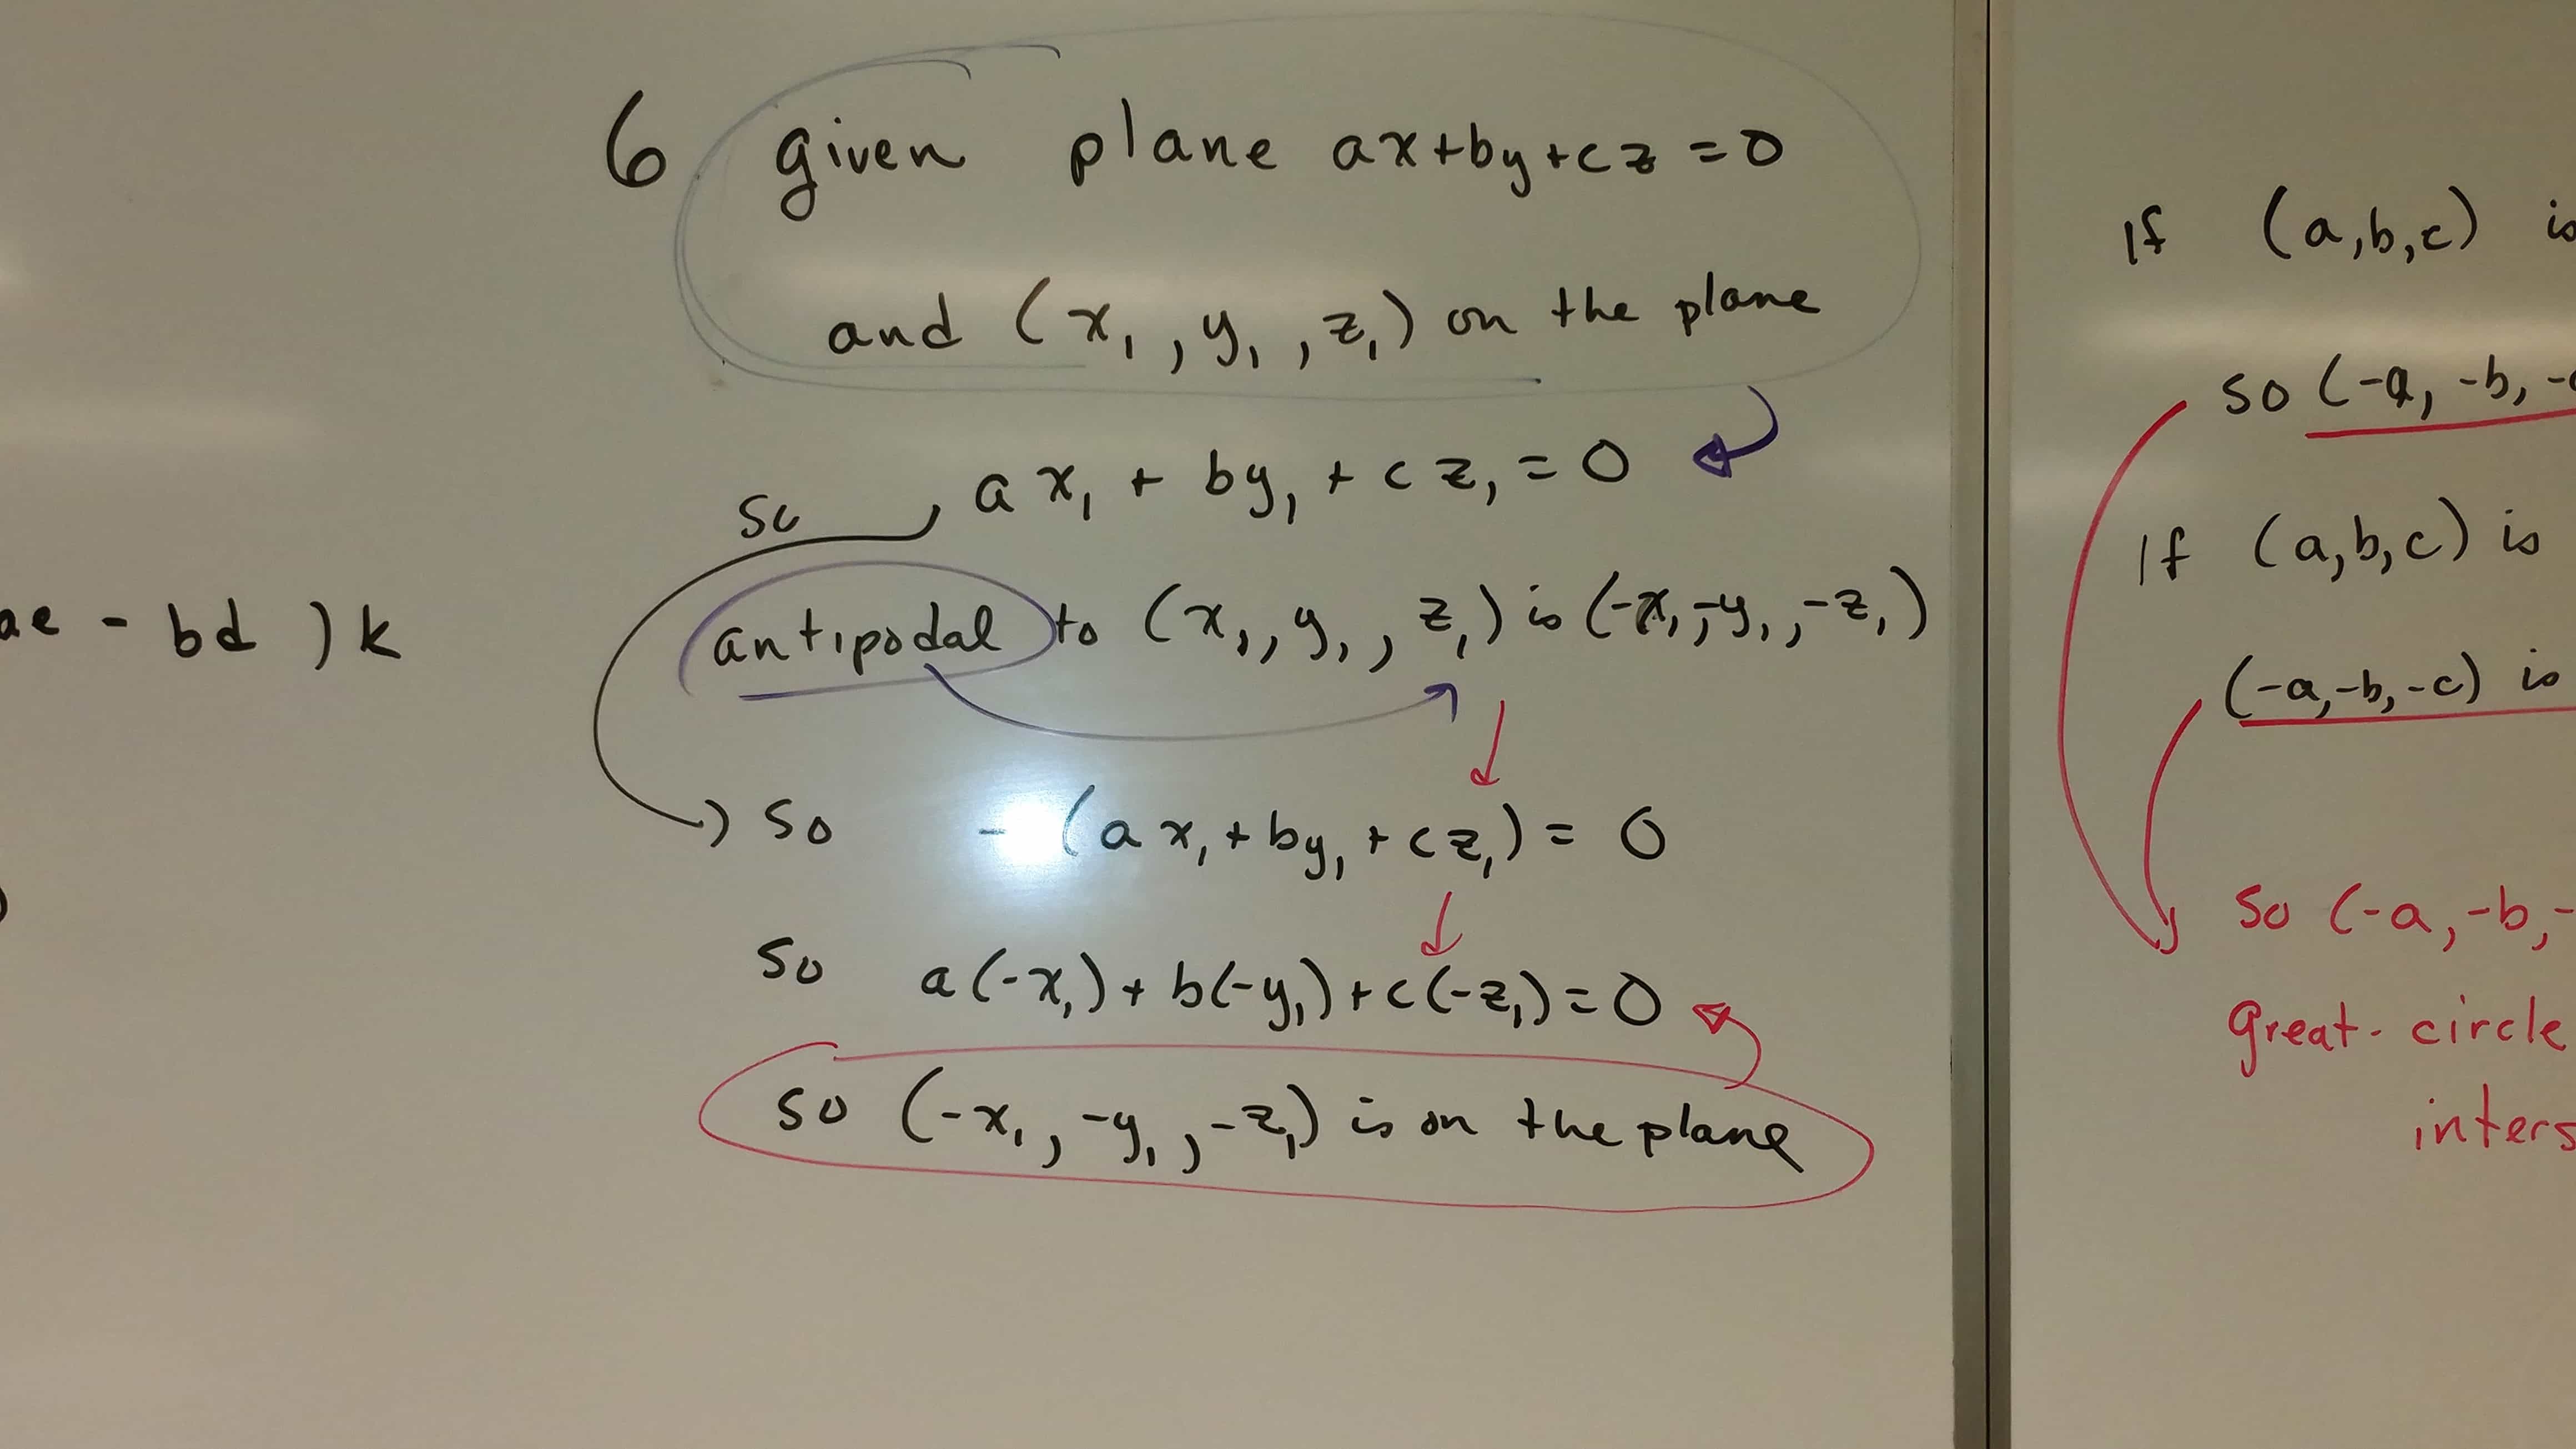 ae - bd ) k
)
6 given plane ax+by+cz=0
and (x₁, y₁, z₁) on the plane
ax₁ + by₁ + cz₁ = 0
so
antipodal to (x₁, y₁, z₁) is (-x₁, -y₁, -z₁)
so -(ax₁ + by₁ + cz₁) = 0
so a(-x₁) + b(-y₁) + c(-z₁) = 0
so (-x₁, -y₁, -z₁) is on the plane
If (a,b,c) is
so (-a, -b, -c
If (a,b,c) is
(-a,-b,-c) is
so (-a, -b, -
great-circle
inters